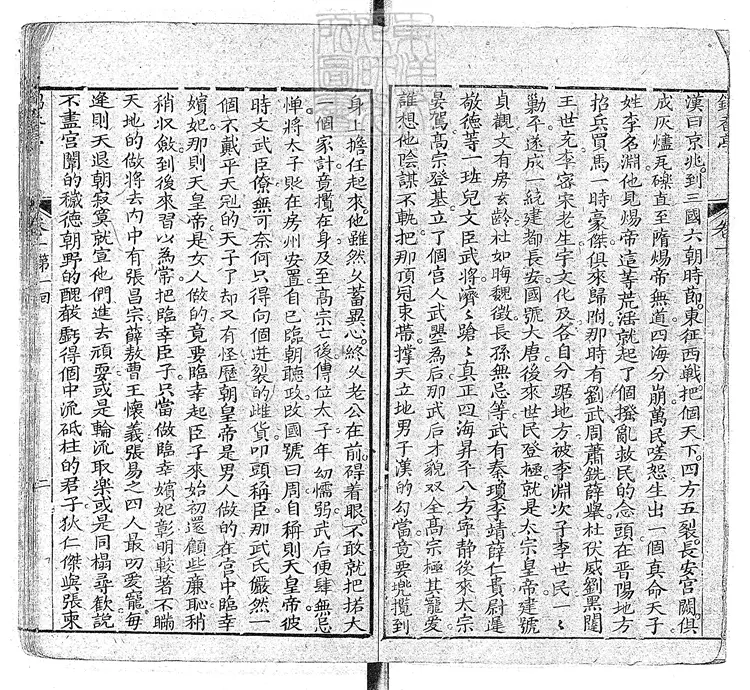 漢曰京兆。到三國六朝時節。東征西戰。把個天下。四方五裂。長安宮闕。俱
成灰燼瓦礫。直至隋煬帝無道。四海分崩。萬民嗟怨。生出一個真命天子
姓李名淵。他見煬帝這等荒淫。就起了個撥亂救民的念頭。在晋陽地方
招兵買馬。一時豪傑俱來歸附。那時有劉武周蕭銑薛舉杜伏威劉黑闥
王世充李密宋老生宇文化及各自分踞地方。被李淵次子李世民一〻
勦平。遂成一統。建都長安。國號大唐。後來世民登極。就是太宗皇帝。建號
貞觀。文有房玄齡杜如晦魏徵長孫無忌等。武有秦瓊李靖薛仁貴尉遲
敬德等。一班兒文臣武將。濟〻蹌〻。真正四海昇平。八方寧靜。後來太宗
晏駕。高宗登基。立了個宮人武曌為后。那武后才貌双全。高宗極其寵愛
誰想他陰謀不軌。把那頂冠束帶。撑天立地。男子漢的勾當。竟要兜攬到
身上擔任起來。他雖然久蓄異心。終久老公在前。碍着眼。不敢就把拈大
一個家計。竟攬在身。及至高宗亡後。傳位太子。年幼懦弱。武后便肆無忌
憚。將太子貶在房州安置。自己臨朝聽政。改國號曰周。自稱則天皇帝。彼
時文武臣僚。無可奈何。只得向個迸裂的雌貨。叩頭稱臣。那武氏儼然一
個不戴平天冠的天子了。却又有怪。歷朝皇帝是男人做的。在宮中臨幸
嬪妃。那則天皇帝是女人做的。竟要臨幸起臣子來。始初還顧些廉恥。稍
稍收斂。到後來習以為常。把臨幸臣子。只當做臨幸嬪妃。彰明較著。不瞞
天地的做將去。內中有張昌宗薛敖曹王懷義張易之四人最叨愛寵。每
逢則天退朝寂寞。就宣他們進去頑耍。或是輪流取樂。或是同榻尋歡。說
不盡宮闈的穢德。朝野的醜聲。虧得個中流砥柱的君子狄仁傑與張柬
卷一
卷一 第一回
二